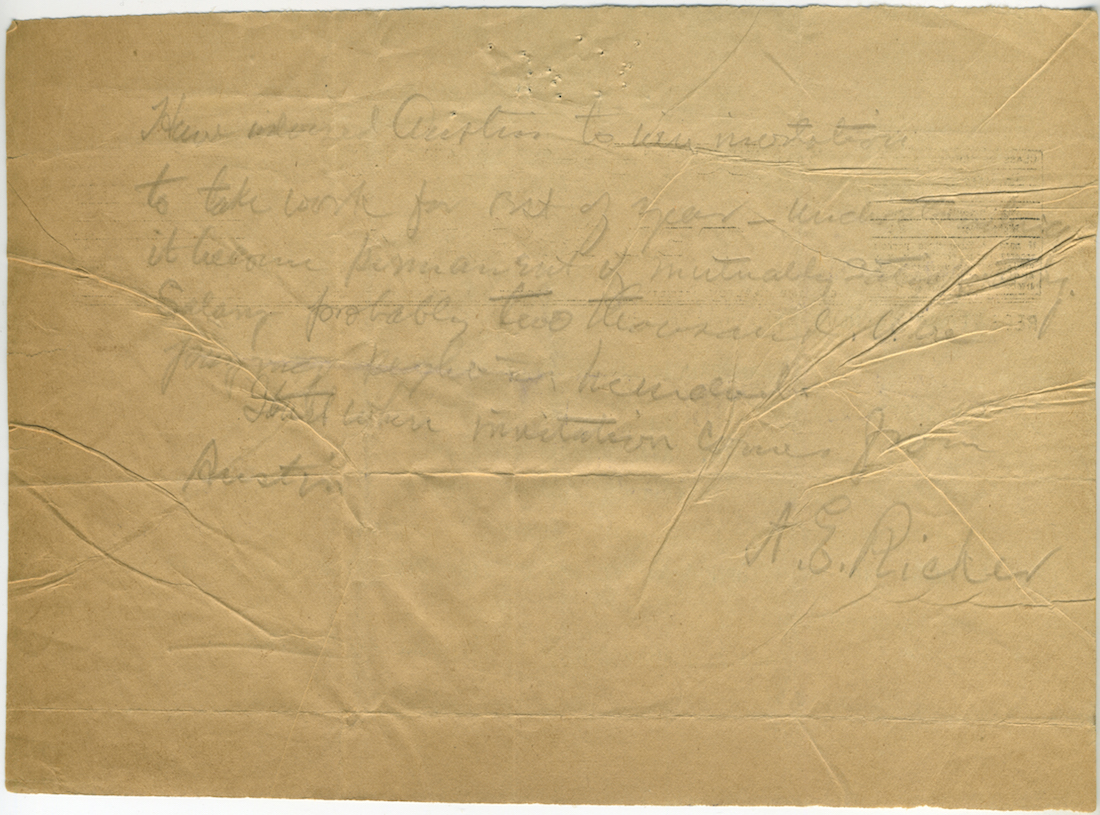 Have Austin to wire invitation
to take work for rest of year – understanding
it become permanent if mutually satisfactory.
Salary probably two thousand.
hundred.
until invitation comes from
Austin
A. E. Ricker